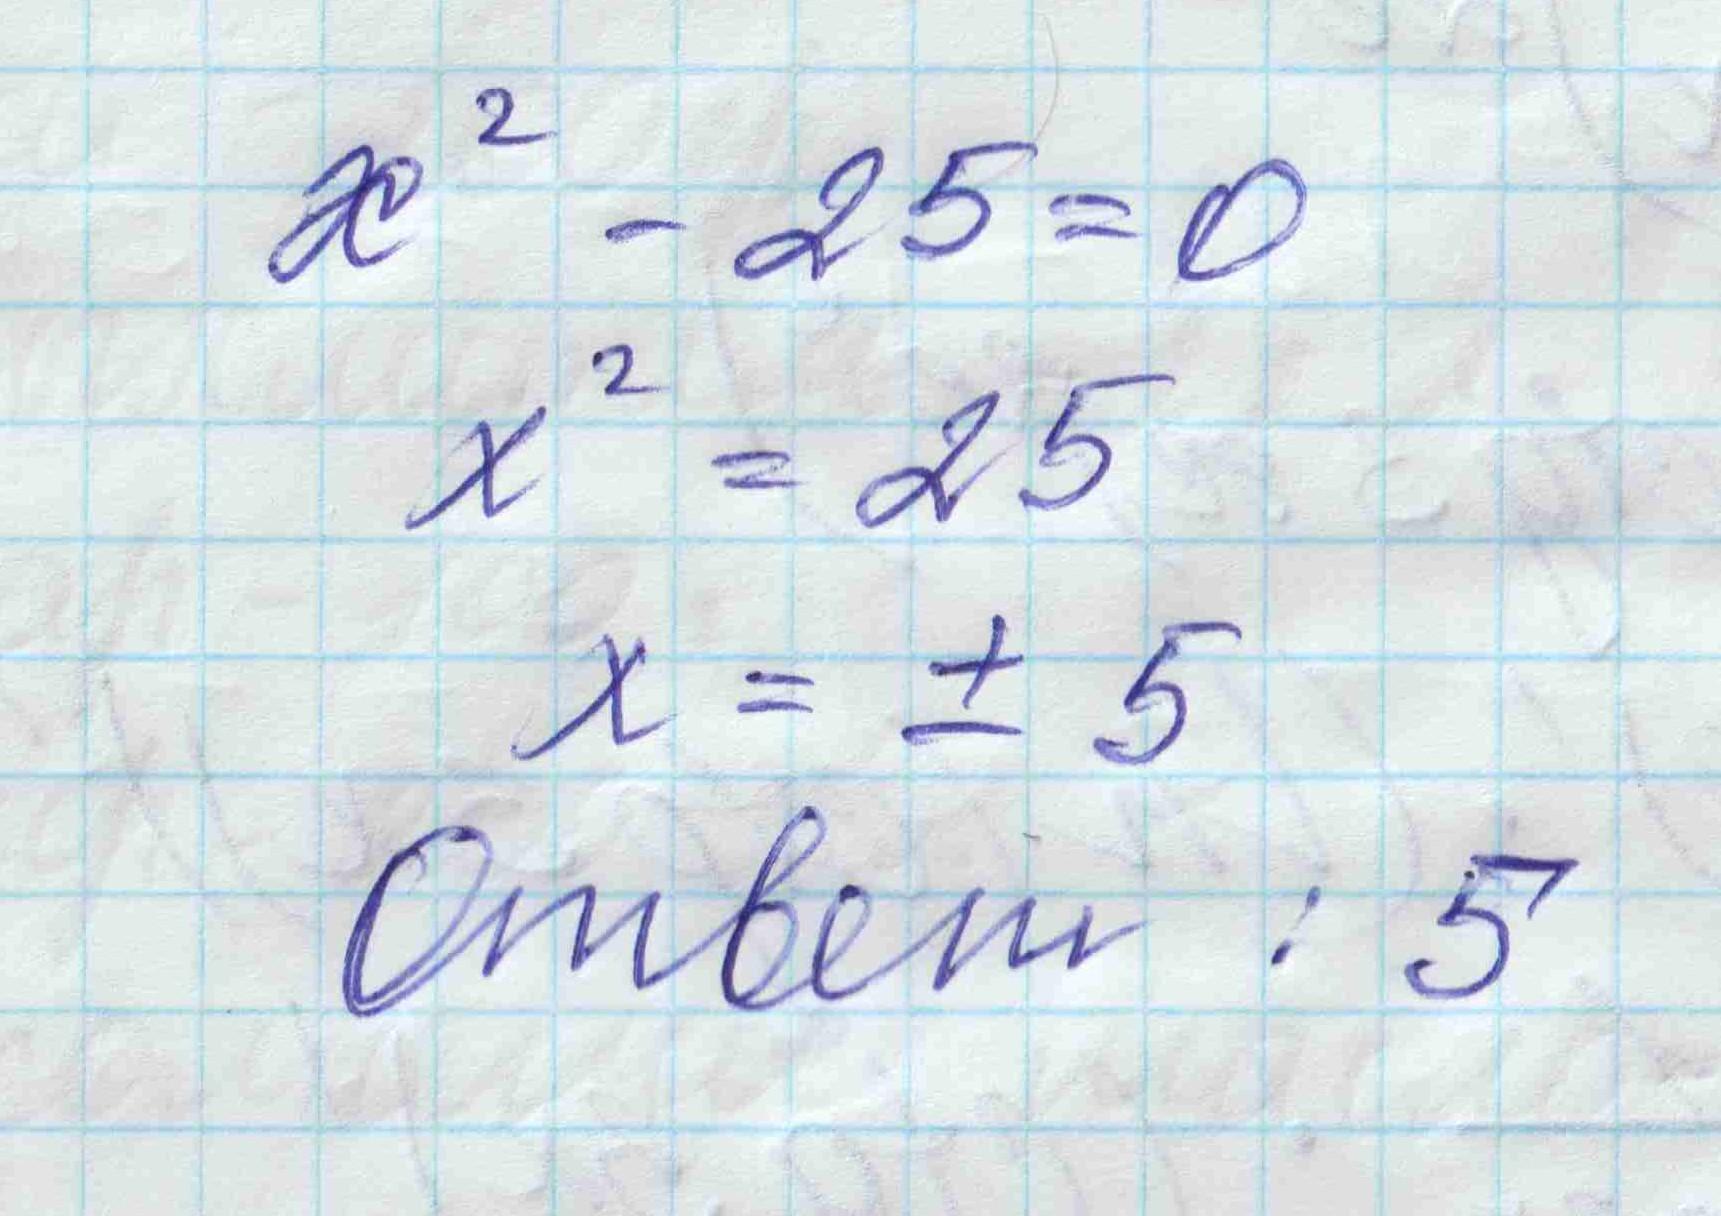 x² - 25 = 0
x² = 25
x = ± 5
Ответ : 5